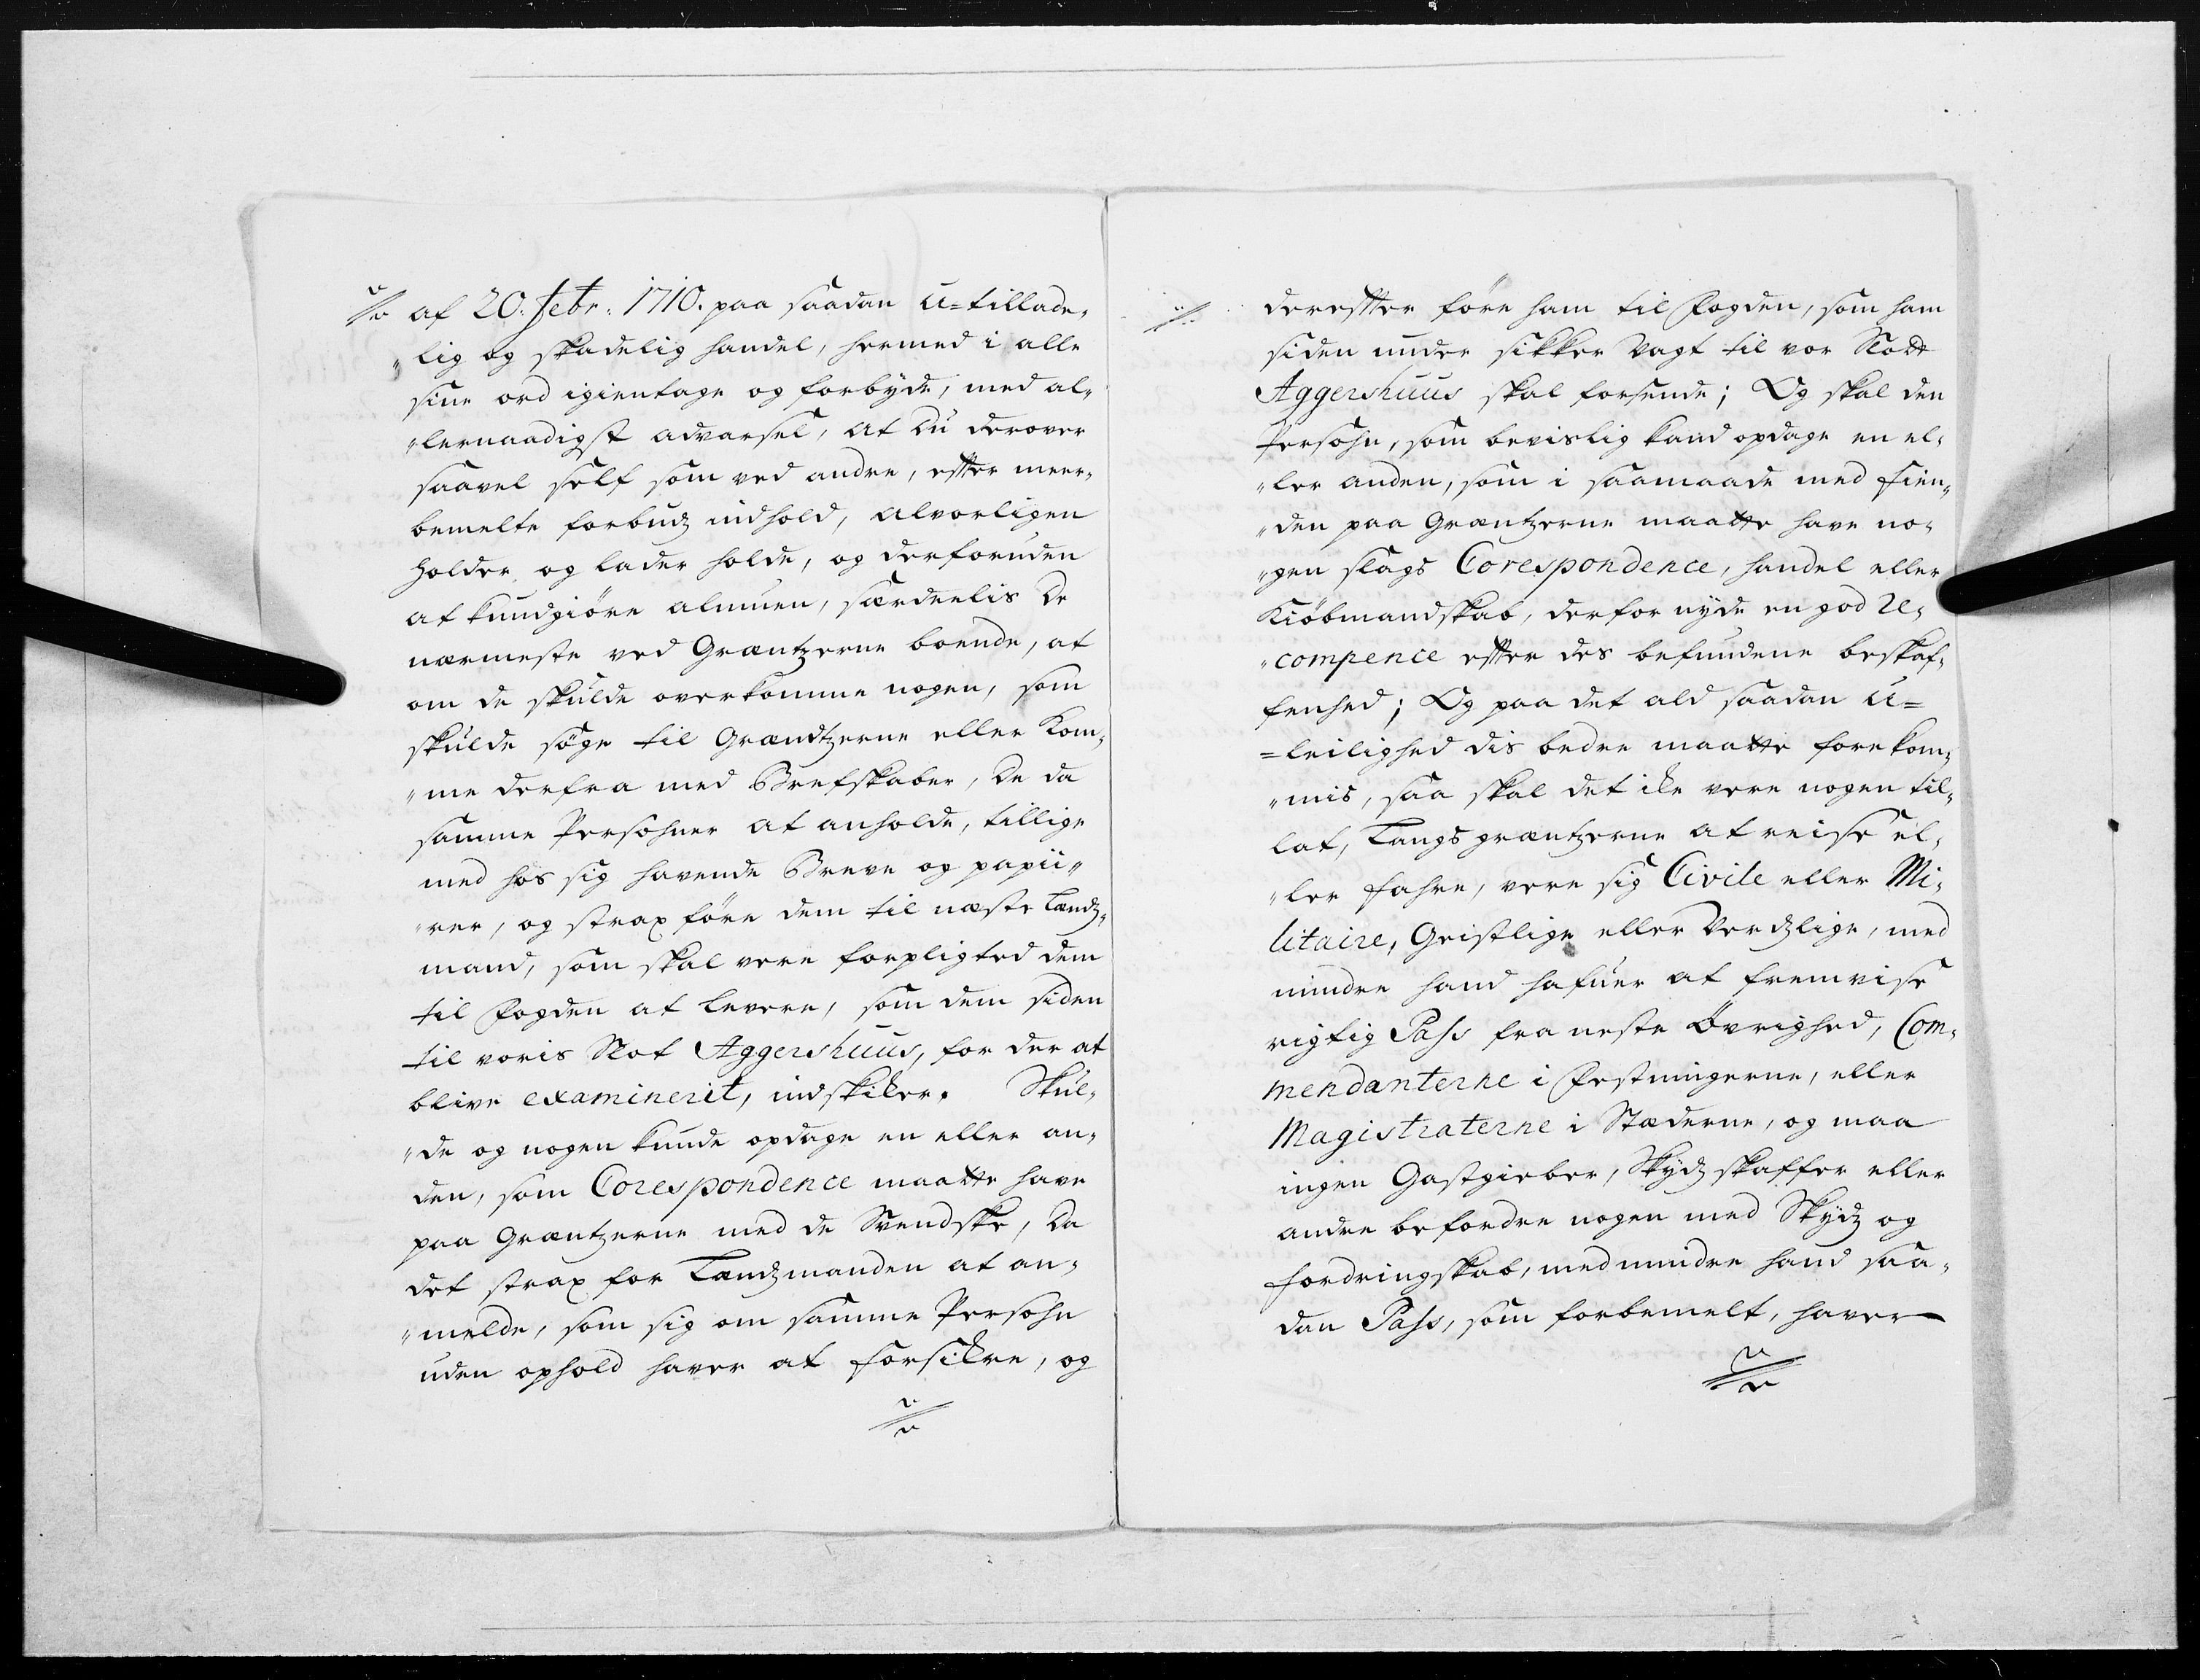 af 20. Febr: 1710. paa saadan u-tillade„
„lig og skadelig handel, hermed i alle
sine ord igientage og forbyde, med al„
„lernaadigst advarsel, at du derover
saavel self som ved andre, efter meer„
bemelte forbudz indhold, alvorligen
holder og lader holde, og derforuden
at kundgiöre almuen, særdeelis de
nærmeste ved Græntzerne boende, at
om de skulde overkomme nogen, som
skulde söge til Grændtzerne eller kom„
„me derfra med Brefskaber, de da
samme Persohner at anholde, tillige
med hos sig havende Breve og papii„
„rer, og strax före dem til næste Lændz„
mand, som skal vere forpligted dem
til Fogden at levere, som dem siden
til voris Slot Aggershuus, for der at
blive examinerit, indskiker. Skul„
„de og nogen kunde opdage en eller an„
den, som Corespondence maatte have
paa Græntzerne med de Svendske, da
det strax for Lændzmanden at an„
„melde, som sig om samme Persohn
uden ophold haver at forsikre, og
derefter före ham til Fogden, som ham
siden under sikker Vagt til vor Slott
Aggershuus skal forsende; Og skal den
Persohn, som bevislig kand opdage en el„
„ler anden, som i saamaade med Fien„
„den paa Græntzerne maatte have no„
„gen slags Corespondence, handel eller
Kiöbmandskab, derfor nyde en god Re„
„compence efter des befundene beskaf„
fenhed; Og paa det ald saadan u=
=leilighed dis bedre maatte forekom„
„mis, saa skal det ike vere nogen til„
lat, Langs græntzerne at reise el„
„ler fahre, vere sig Civile eller Mi„
litaire, Geistlige eller Verdzlige, med
mindre hand hafuer at fremvise
rigtig Pass fra neste Övrighed, Com„
mendanterne i Festningerne, eller
Magistraterne i Stæderne, og maa
ingen Gastgieber, Skydz skaffer eller
andre befordre nogen med Skydz og
fordringskab, med mindre hand saa„
dan Pass, som forbemelt, haver